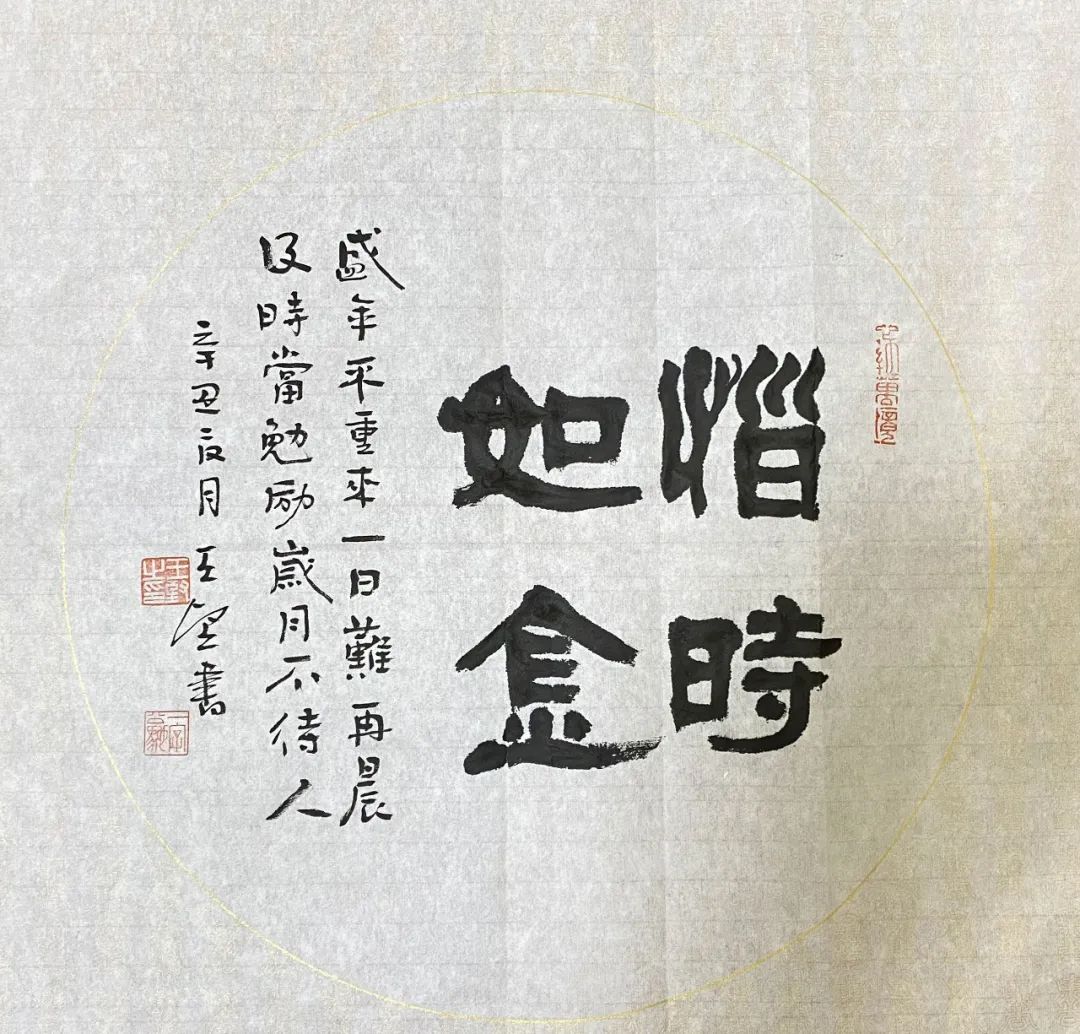 惜時
如金
盛年不重来一日難再晨
及時當勉励歲月不待人
辛丑辰月王書